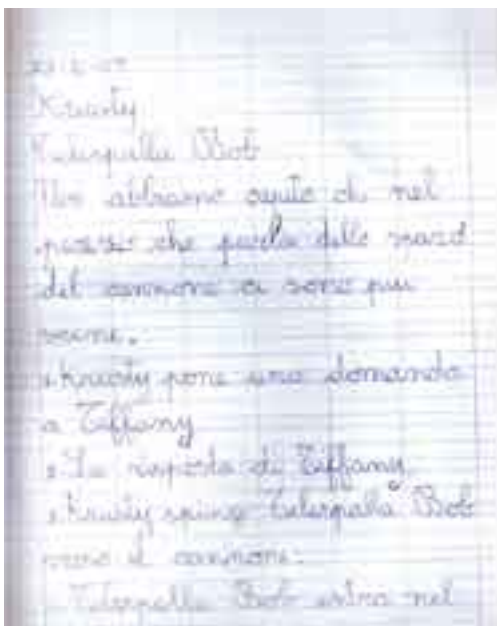 Krusty
Telespalla Bob
Noi abbiamo capito che nel
pezzo che parla dello sparo
del cannone ci sono più
scene.
Krusty pone una domanda
a Tiffany
La risposta di Tiffany
Krusty spinge Telespalla Bob
verso il cannone.
Telespalla Bob entra nel